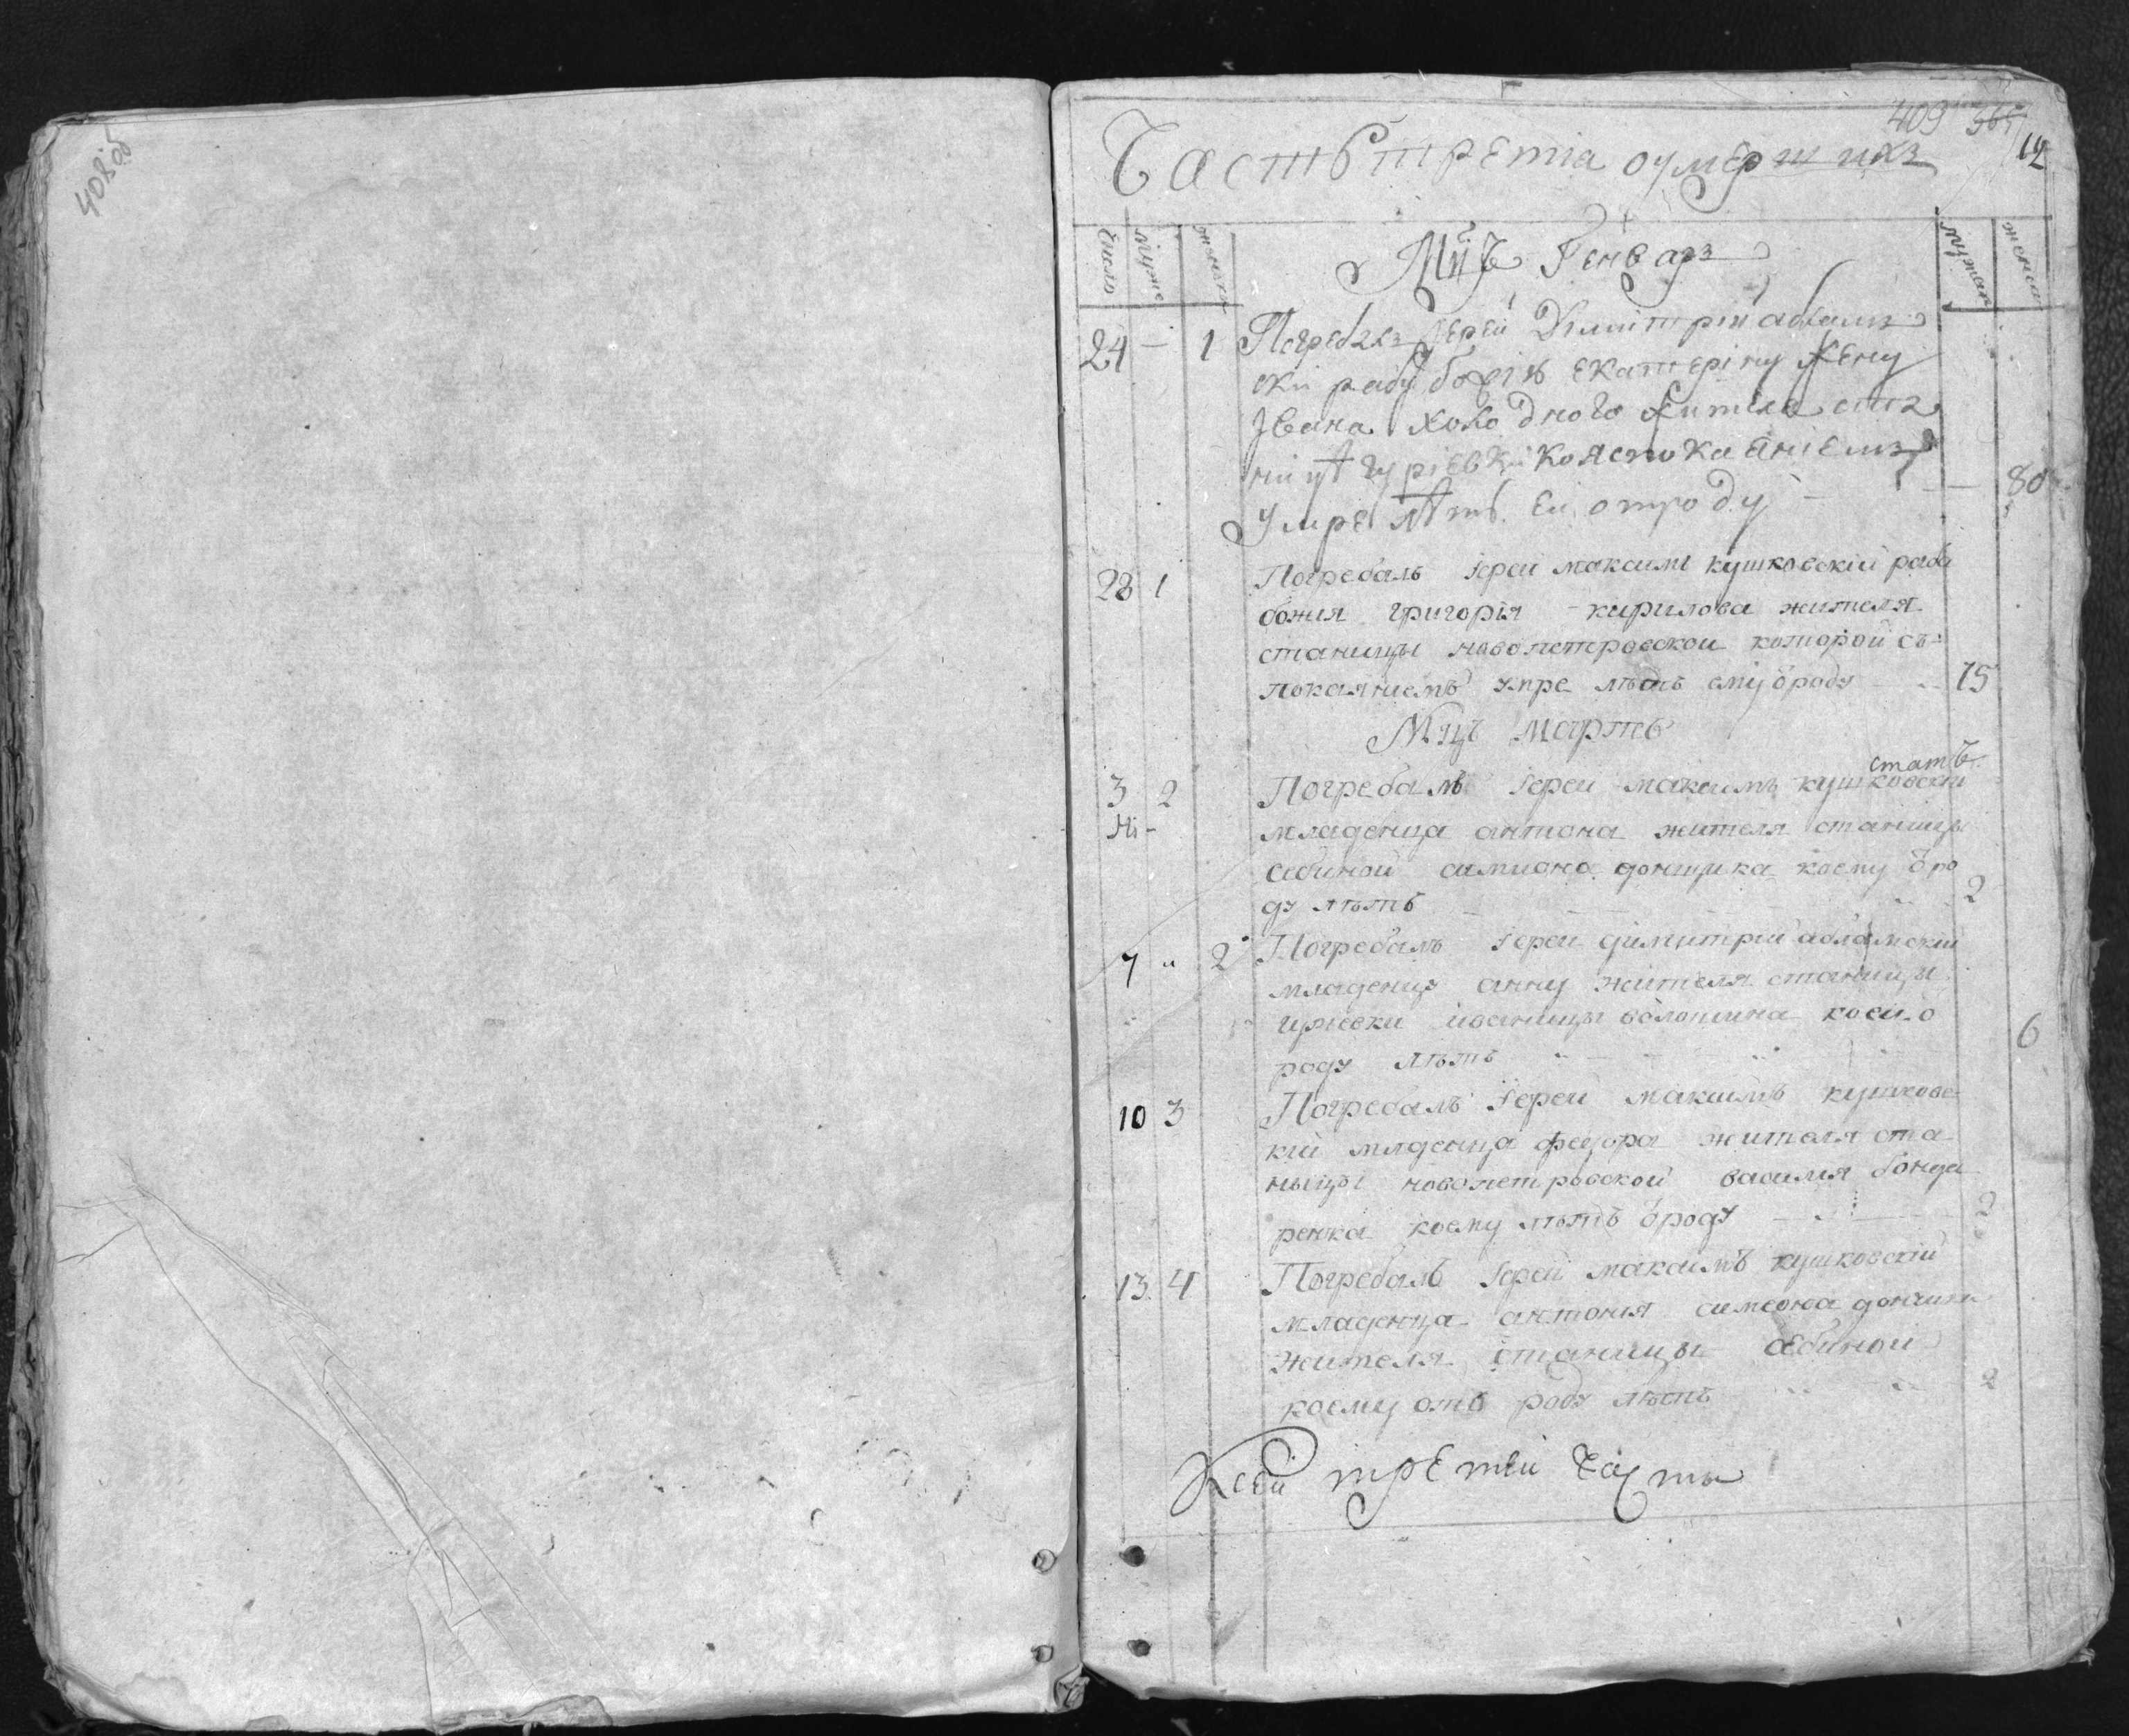 408 об
409
14
Часть третїа оумершихъ
Число
муже
женска
Мцъ Генварь
24 — 1 Погребалъ Іерей Димитрій аблам
скїи рабу божію Екатеріну жену
Івана холодного жителя ста
ници гуріевки коя с покаяніемъ
умре лѣтъ ей отроду — 80
28 1 Погребалъ Іерей максимъ кушковскій раба
божия григорія кирилова жителя
станицы новопетровской которой съ
покаяниемъ умре лѣтъ ему ѿроду 75
Мцъ Мартъ
стать
3 2 Погребалъ Іерей максимъ кушковскій
младенца антона жителя станицы
себиной симиона донщика коему ѿ ро
ду лѣтъ 2
7 " 2 Погребалъ Іерей димитрій абламскій
младенцу анну жителя станицы
волошина коей ѿ
роду лѣтъ 6
10 3 Погребалъ Іерей максимъ кушковс
кій млденца феѡдора жителя ста
ницы новопетровской василия бонда
ренка коему лѣтъ ѿроду 2
13 4 Погребалъ Іерей максимъ кушковскій
младенца антония симеона донщика
жителя станицы себиной
коему отъ роду лѣтъ 2
Ксей третей части